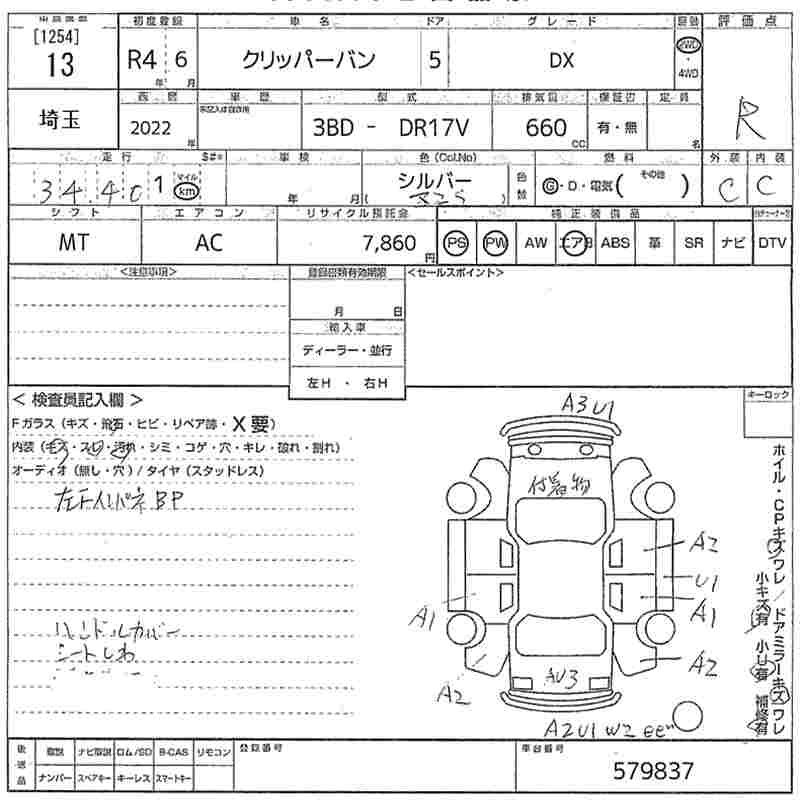 [1254]
13
初度登録 車名 ドア グレード 評価点
R4 6 クリッパーバン 5 DX 2WD・4WD
年 月
埼玉
車歴 型式 排気量 保証書 定員
2022 年 3BD - DR17V 660 CC 有・無 名
R
走行 S#* 車検 色(Col.No) 燃料 外装 内装
34,401 マイル km 年 月 シルバー ( ) 色数 G・D・電気( その他 ) C C
シフト エアコン リサイクル預託金 純正装備品
MT AC 7,860 円 PS PW AW エアB ABS 革 SR ナビ DTV
<注意事項> 登録書類有効期限 <セールスポイント>
月 日
輸入車
ディーラー・並行
左H ・ 右H
< 検査員記入欄 >
Fガラス(キズ・飛石・ヒビ・リペア跡・X要)
内装(キズ・スレ・汚れ・シミ・コゲ・穴・キレ・破れ・割れ)
オーディオ(無し・穴)/タイヤ(スタッドレス)
左FインパネBP
ハンドルカバー
シートしわ
キーロック
A3 U1
付着物
A2
U1
A1
A1
A2
A2
AU3
A2 U1 W2
ホイル・CPキズワレ/ドアミラーキズワレ
小キズ有 小U有 補修有
後送品 取説 ナビ取説 ロム/SD B-CAS リモコン 登録番号 車台番号
ナンバー スペアキー キーレス スマートキー
579837